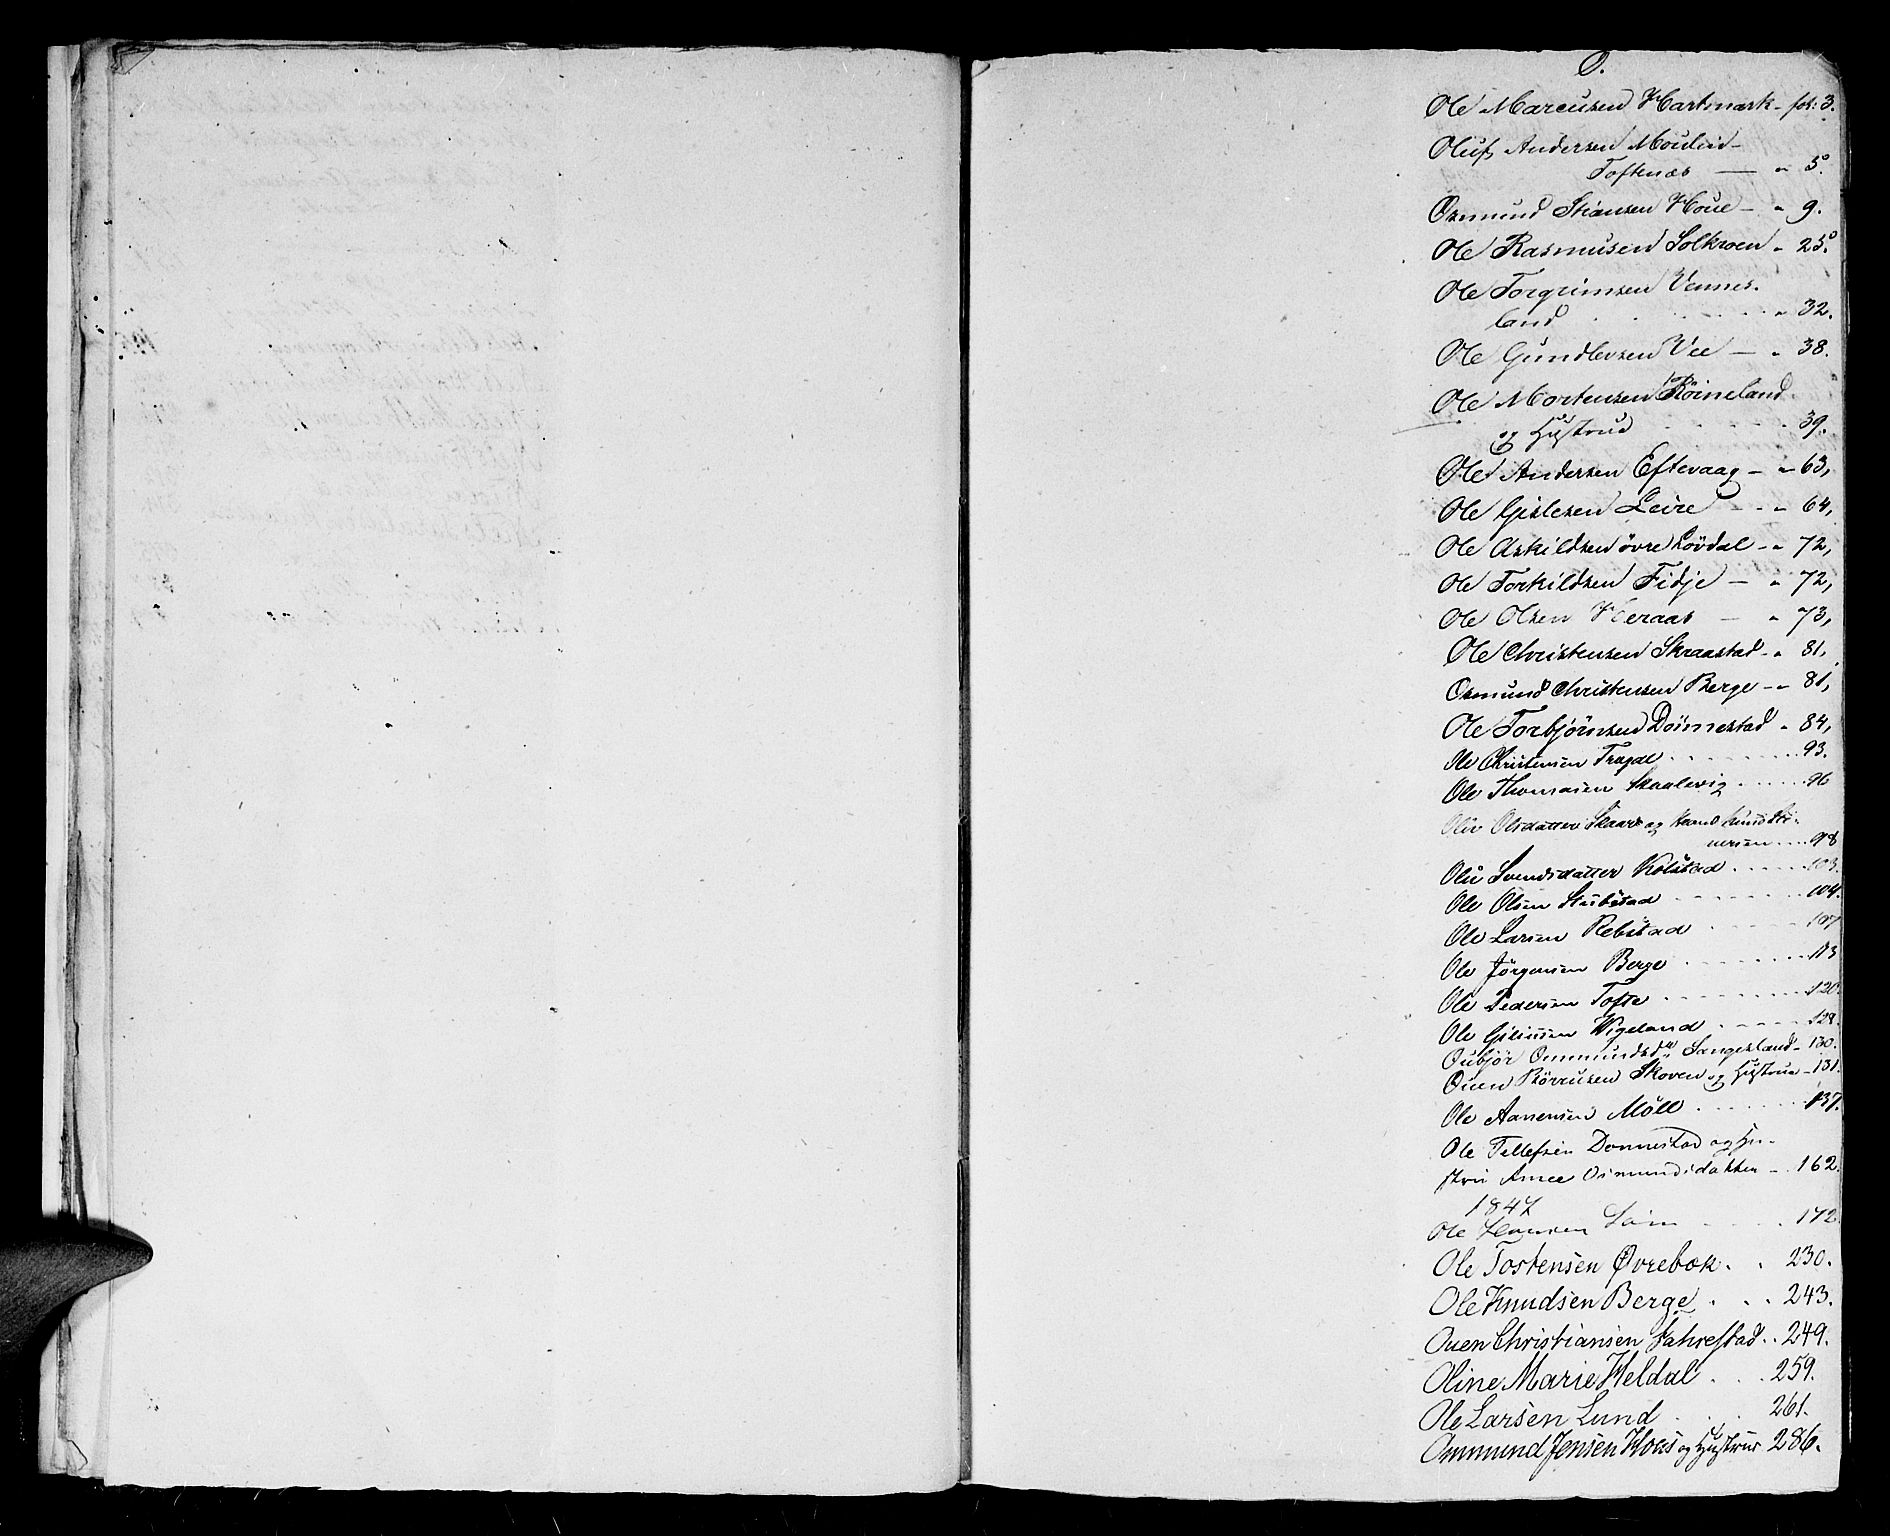 O.
Ole Marcussen Hartmark - fol: 3.
Oluf Andersen Moulind-
Toftenæs — " 5.
Osmund Stiansen Houe - " 9.
Ole Rasmusen Solkroen " 25.
Ole Torgrimsen Vennes-
land " 32.
Ole Gundlevsen Vee — " 38.
Ole Mortensen Röineland
og Hustrue 39.
Ole Andersen Eftevaag - " 63,
Ole Gislesen Leire - " 64,
Ole Askildsen övre Lövdal - " 72,
Ole Torkildsen Fidje — " 72,
Ole Olsen Heraas — " 73,
Ole Christensen Skraastad - " 81.
Osmund Christensen Berge - " 81,
Ole Torbjörnsen Döinnestad " 84,
Ole Christensen Trygde 93.
Ole Thomasen Skaalevig 96
Oliv Olsdatter Skaare og Mand Knud
nersen 98
Oliv Svendsdatter Kolstad 103.
Ole Olsen Stubstad 104.
Ole Larsen Rebstad 107
Ole Jörgensen Berge 113
Ole Pedersen Tofte 120.
Ole Gitlesen Wigeland 128.
Oubjör Ommundsdr Sangesland - 130.
Ouen Börresen Skoven og Hustrue - 131.
Ole Aanensen Möll 137.
Ole Tellefsen Donnestad og Hu-
stru Anne Osmundsdatter - 162.
1847
Ole Hansen 172.
Ole Tostensen Øvrebøk. 230.
Ole Knudsen Berge 243.
Ouen Christiansen Fahrestad 249.
Oline Marie Heldal 259.
Ole Larsen Lund 261.
Ommund Jensen Hoes og Hustrue 286.